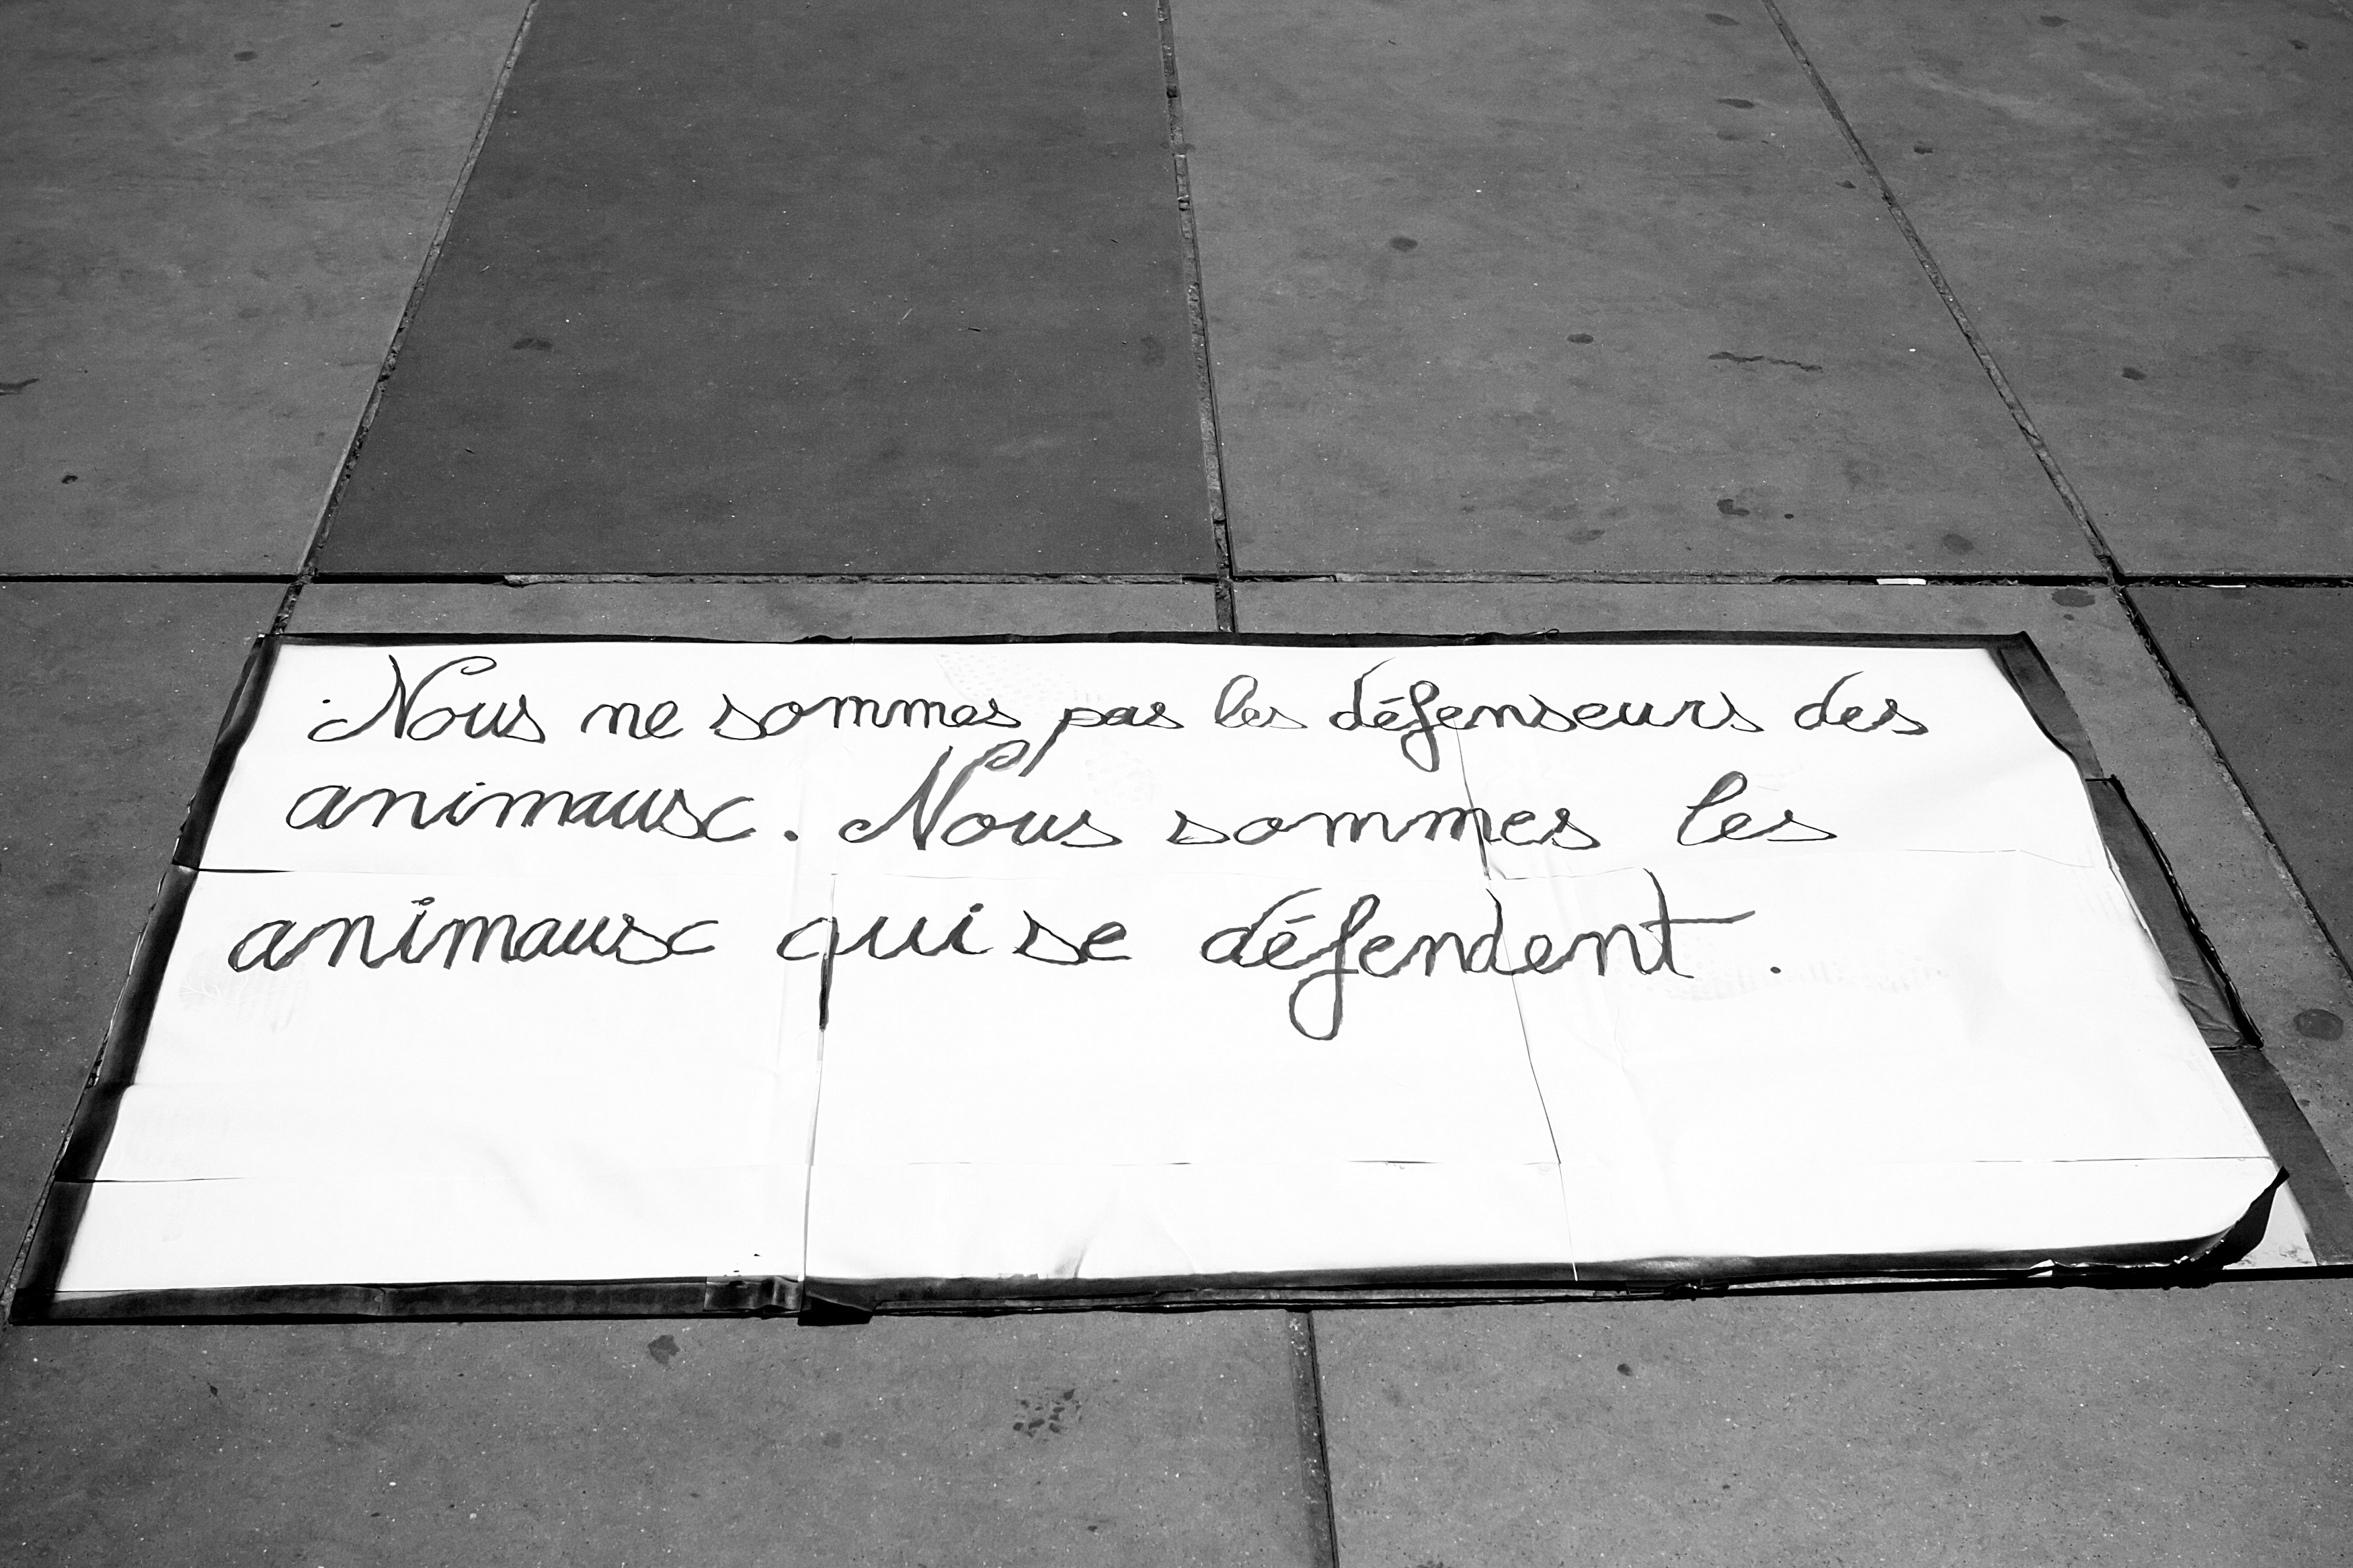 Nous ne sommes pas les défenseurs des
animaux. Nous sommes les
animaux qui se défendent.